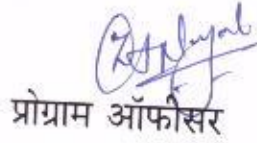 प्रोग्राम ऑफीसर